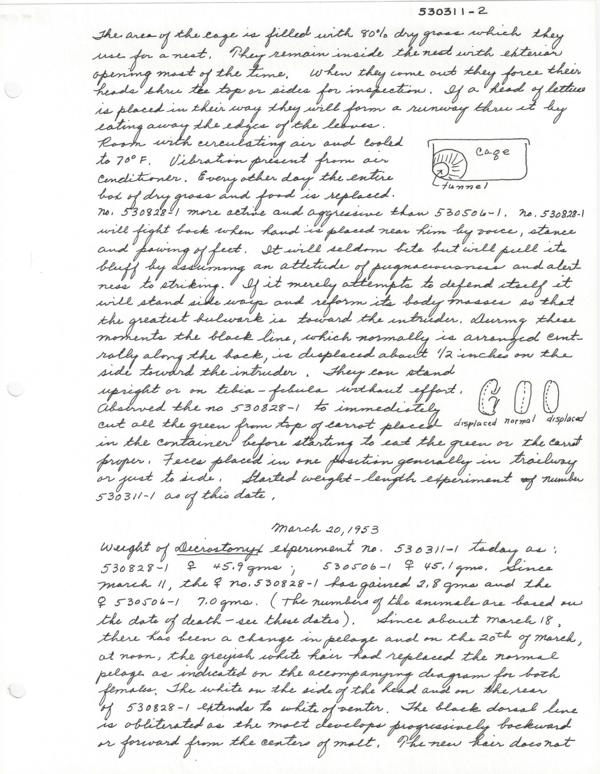 530311-2
The area of the cage is filled with 80% dry grass which they
use for a nest. They remain inside the nest with exterior
opening most of the time. When they come out they force their
heads thru the top or sides for inspection. If a head of lettuce
is placed in their way they will form a runway thru it by
eating away the edges of the leaves.
Room with circulating air and cooled
to 70° F. Vibration present from air
conditioner. Every other day the entire
box of dry grass and food is replaced.
cage
tunnel
No. 530828-1 more active and aggressive than 530506-1. No. 530828-1
will fight back when hand is placed near him by voice, stance
and pawing of feet. It will seldom bite but will pull its
bluff by assuming an attetude of pugnaciousness and alert-
ness to striking. If it merely attempts to defend itself it
will stand side ways and reform its body masses so that
the greatest bulwark is toward the intruder. During these
moments the black line, which normally is arranged cent-
rally along the back, is displaced about 1/2 inches on the
side toward the intruder. They can stand
upright or on tibia-fibula without effort.
Observed the no 530828-1 to immediately
cut all the green from top of carrot placed
displaced normal displaced
in the container before starting to eat the green or the carrot
proper. Feces placed in one position generally in trailway
or just to side. Started weight-length experiment of number
530311-1 as of this date.
March 20, 1953
Weight of Dicrostonyx experiment no. 530311-1 today as:
530828-1 ♀ 45.9 gms; 530506-1 ♀ 45.1 gms. Since
March 11, the ♀ no. 530828-1 has gained 2.8 gms and the
♀ 530506-1 7.0 gms. (The numbers of the animals are based on
the date of death - see these dates). Since about March 18,
there has been a change in pelage and on the 20th of March,
at noon, the greyish white hair had replaced the normal
pelage as indicated on the accompanying diagram for both
females. The white on the side of the head and on the rear
of 530828-1 extends to white of venter. The black dorsal line
is obliterated as the molt develops progressively backward
or forward from the centers of molt. The new hair does not